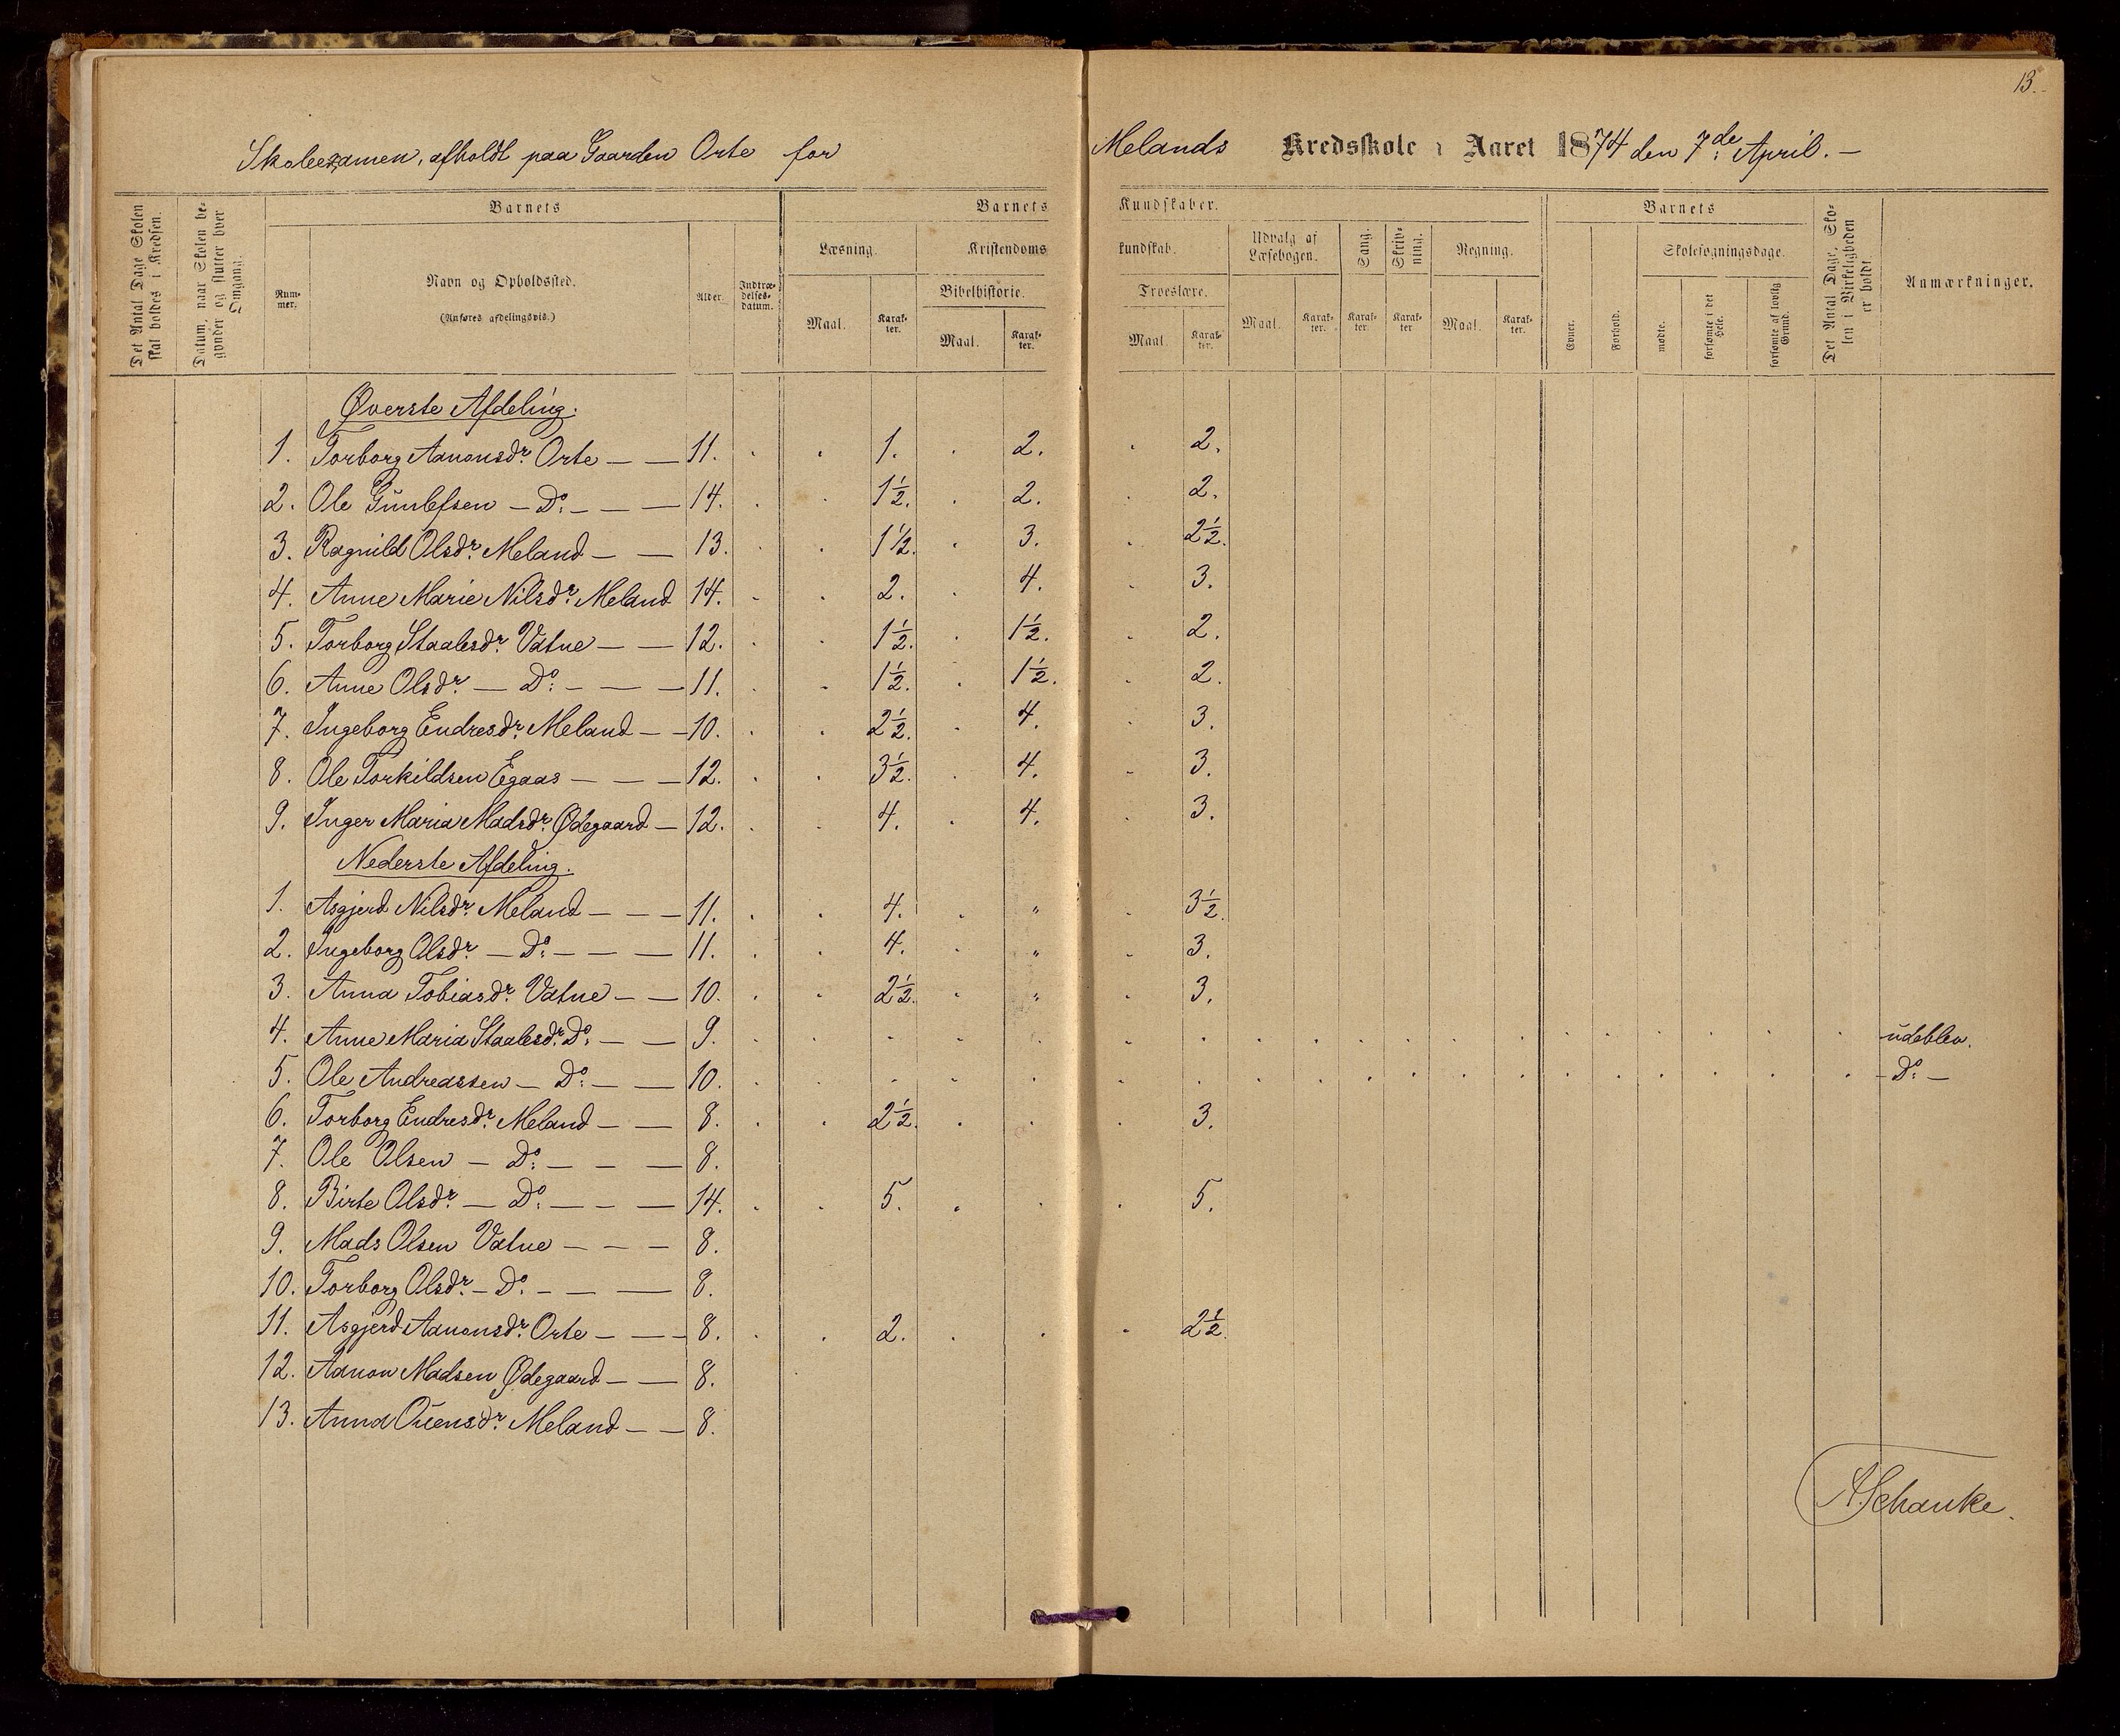 13.
Skoleexamen, afholdt paa Gaarden Orte for Melands Kredsskole i Aaret 1874 den 7de April. —
Det Antal Dage Skolen skal holdes i Kredsen.
Datum, naar Skolen begynder og slutter hver Omgang.
Barnets
Nummer.
Navn og Opholdssted.
(Anføres afdelingsvis.)
Alder.
Indtrædelsesdatum.
Barnets Kundskaber.
Læsning.
Maal. Karakter.
Kristendomskundskab.
Bibelhistorie.
Maal. Karakter.
Troeslære.
Maal. Karakter.
Udvalg af Læsebogen.
Maal. Karakter.
Sang.
Karakter.
Skrivning.
Karakter
Regning.
Maal. Karakter.
Barnets
Evner.
Forhold.
Skolesøgningsdage.
mødte.
forsømte i det Hele.
forsømte af lovlig Grund.
Det Antal Dage, Skolen i Virkeligheden er holdt.
Anmærkninger.
Øverste Afdeling.
1. Torborg Aanonsdr. Orte — — 11. 1. 2. 2.
2. Ole Gunlefsen — Do: — — — 14. 1½. 2. 2.
3. Ragnild Olsdr. Meland — — 13. 1½. 3. 2½.
4. Anne Marie Nilsdr. Meland 14. 2. 4. 3.
5. Torborg Staalesdr. Vatne — — 12. 1½. 1½. 2.
6. Anne Olsdr. — Do: — — — 11. 1½. 1½. 2.
7. Ingeborg Endresdr. Meland — — 10. 2½. 4. 3.
8. Ole Torkildsen Egaas — — — 12. 3½. 4. 3.
9. Inger Maria Madsdr. Ødegaard — 12. 4. 4. 3.
Nederste Afdeling.
1. Asgjerd Nilsdr. Meland — — — 11. 4. " 3½.
2. Ingeborg Olsdr. — Do: — — — 11. 4. " 3.
3. Anna Tobiasdr. Vatne — — 10. 2½. " 3.
4. Anne Maria Staalesdr. Do: — — 9. udeblev.
5. Ole Andreassen — Do: — — 10. — Do: —
6. Torborg Endresdr. Meland — — 8. 2½. 3.
7. Ole Olsen — Do: — — — 8.
8. Birte Olsdr. — Do: — — — 14. 5. 5.
9. Mads Olsen Vatne — — — 8.
10. Torborg Olsdr. — Do. — — — 8.
11. Asgjerd Aanonsdr. Orte — — — 8. 2. 2½.
12. Aanon Madsen Ødegaard — — 8.
13. Anna Ouensdr. Meland — — 8.
A. Schanke.